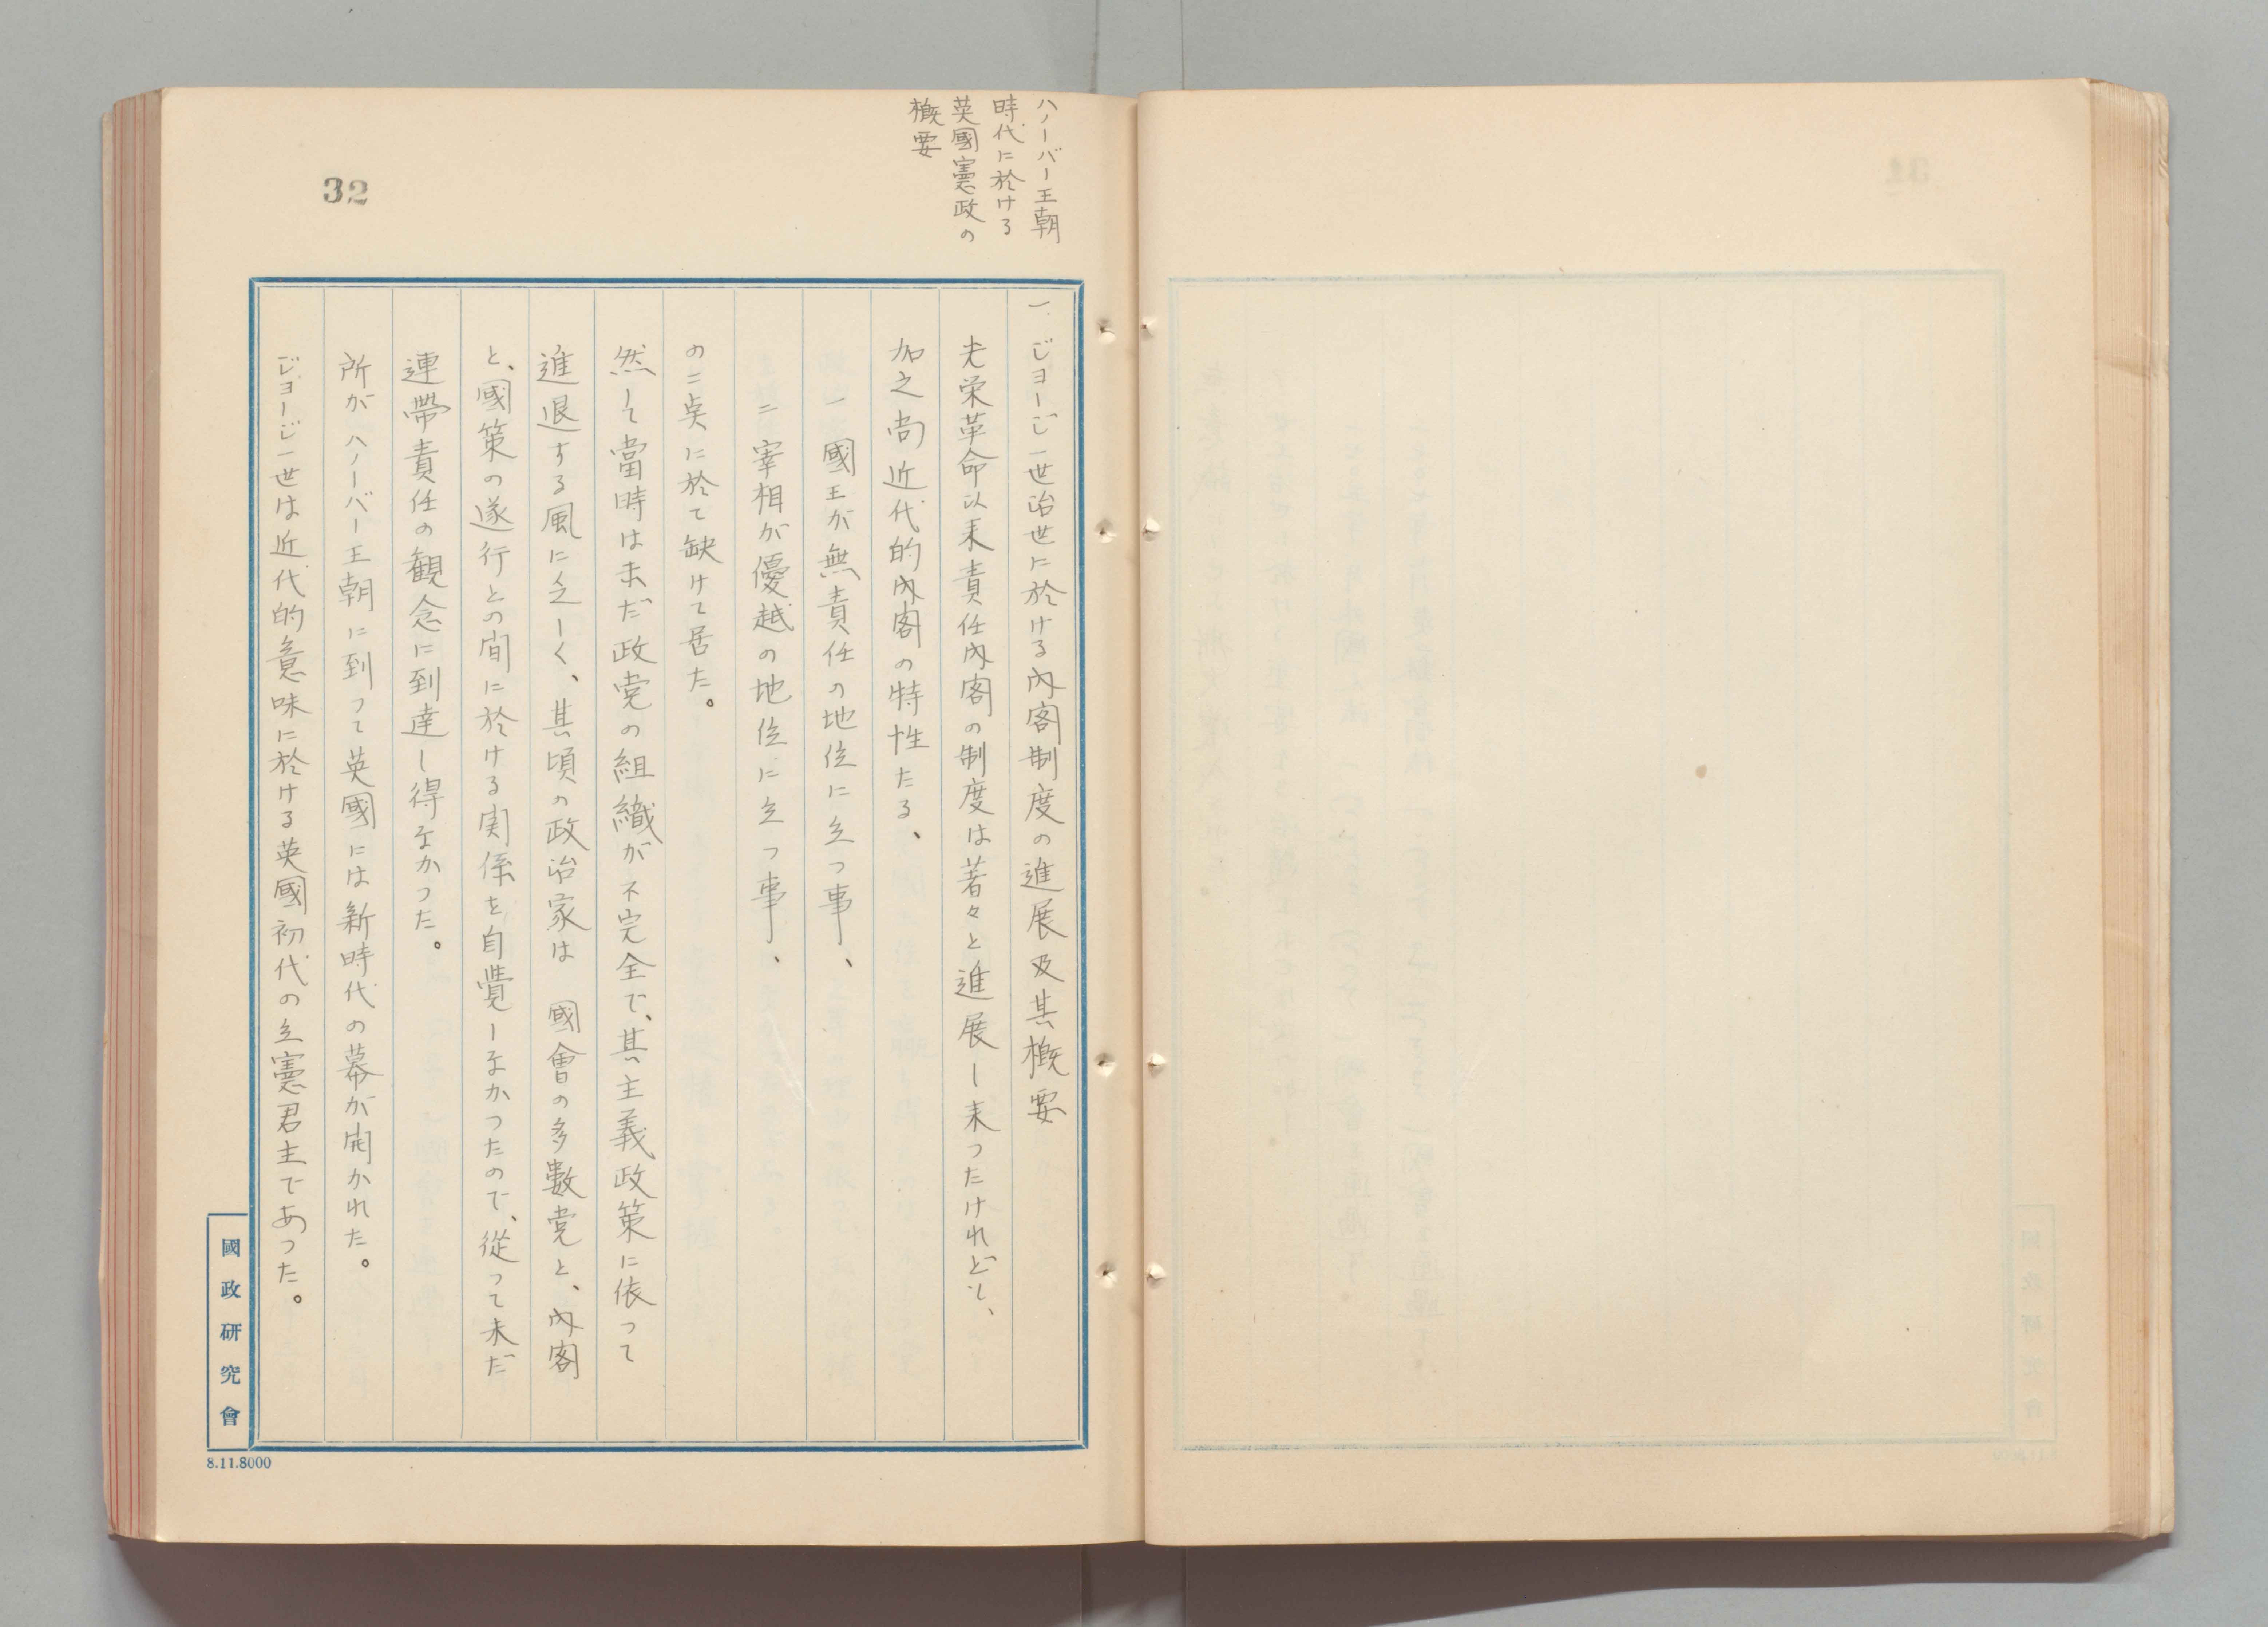 ハノーバー王朝
時代に於ける
英國憲政の
概要
32
一、ジョージ一世治世に於ける內閣制度の進展及其概要
光栄革命以来責任內閣の制度は著々と進展し来つたけれども、
加之尚近代的內閣の特性たる、
一 國王が無責任の地位に立つ事、
二 宰相が優越の地位に立つ事、
の二点に於て缺けて居た。
然して當時は未だ政党の組織が不完全で、其主義政策に依つて
進退する風に乏しく、其頃の政治家は 國會の多數党と、內閣
と、國策の遂行との間に於ける関係を自覺しなかつたので、從つて未だ
連帶責任の観念に到達し得なかつた。
所がハノーバー王朝に到つて英國には新時代の幕が開かれた。
ジョージ一世は近代的意味に於ける英國初代の立憲君主であつた。
國政研究會
8.11.8000